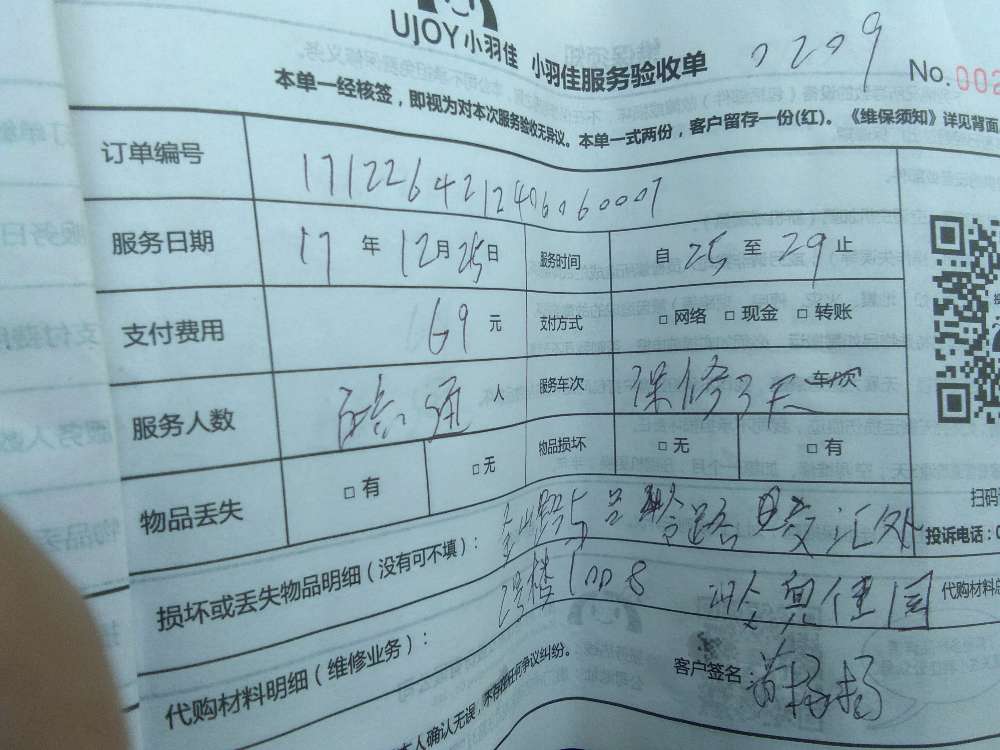 UJOY小羽佳 小羽佳服务验收单 0209 No.002
本单一经核签，即视为对本次服务验收无异议。本单一式两份，客户留存一份(红)。《维保须知》详见背面
订单编号 1712264212406060007
服务日期 17年12月25日 服务时间 自25至29止
支付费用 69元 支付方式 □网络 □现金 □转账
服务人数 人 服务车次 保修3天 车次
物品丢失 □有 □无 物品损坏 □无 □有
扫码
损坏或丢失物品明细（没有可不填）： 路与 路 交汇处 投诉电话：0
代购材料明细（维修业务）： 楼1008 佳园 代购材料总
本人确认无误，不存在任何争议纠纷。 客户签名：